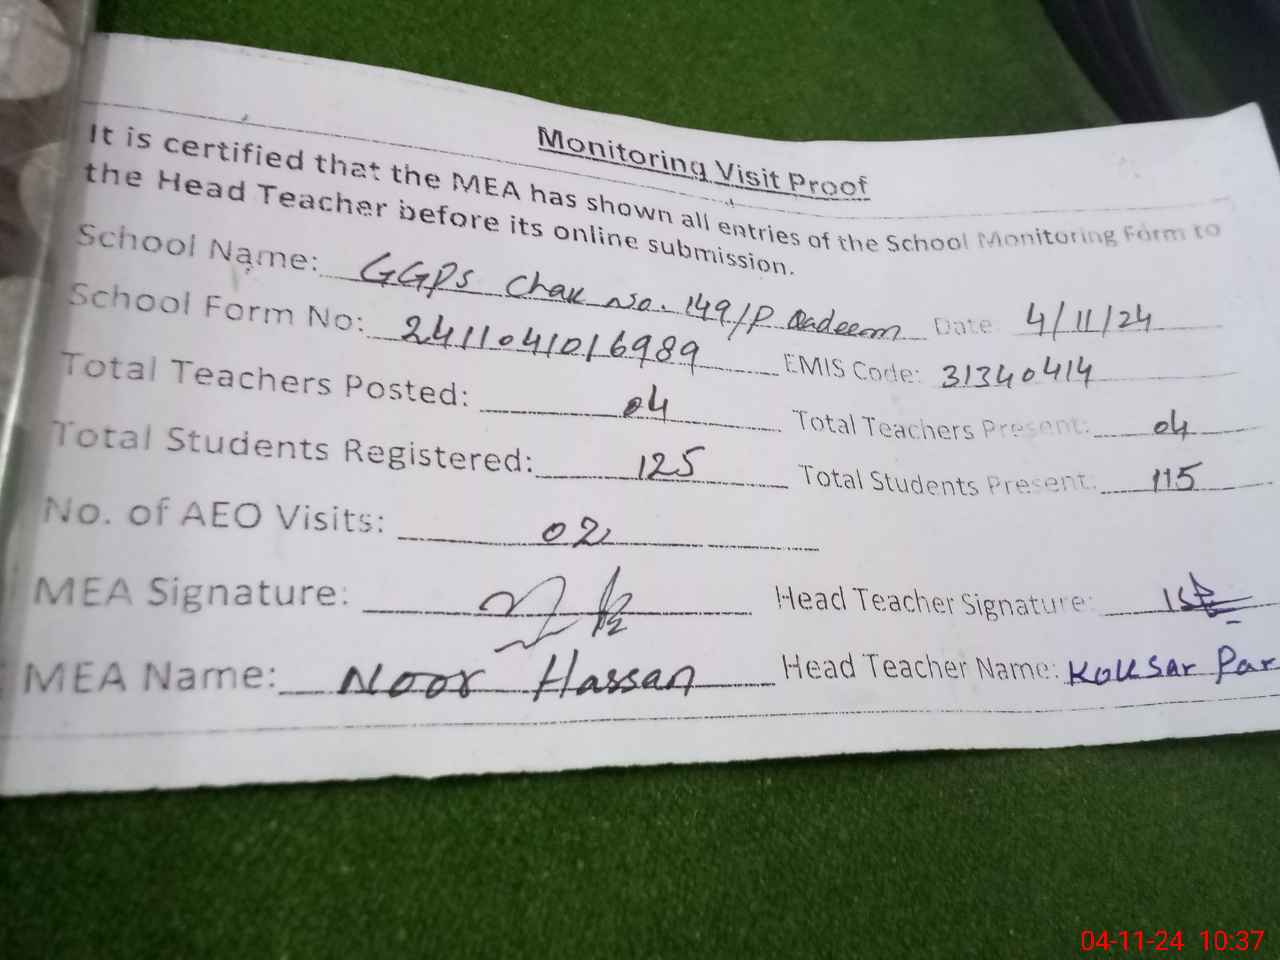 Monitoring Visit Proof
It is certified that the MEA has shown all entries of the School Monitoring Form to
the Head Teacher before its online submission.
School Name: GGPS Chak No. 149/P Qadeem Date: 4/11/24
School Form No: 2411041016989 EMIS Code: 31340414
Total Teachers Posted: 04 Total Teachers Present: 04
Total Students Registered: 125 Total Students Present: 115
No. of AEO Visits: 02
MEA Signature: Head Teacher Signature:
MEA Name: Noor Hassan Head Teacher Name: Kousar Par
04-11-24 10:37